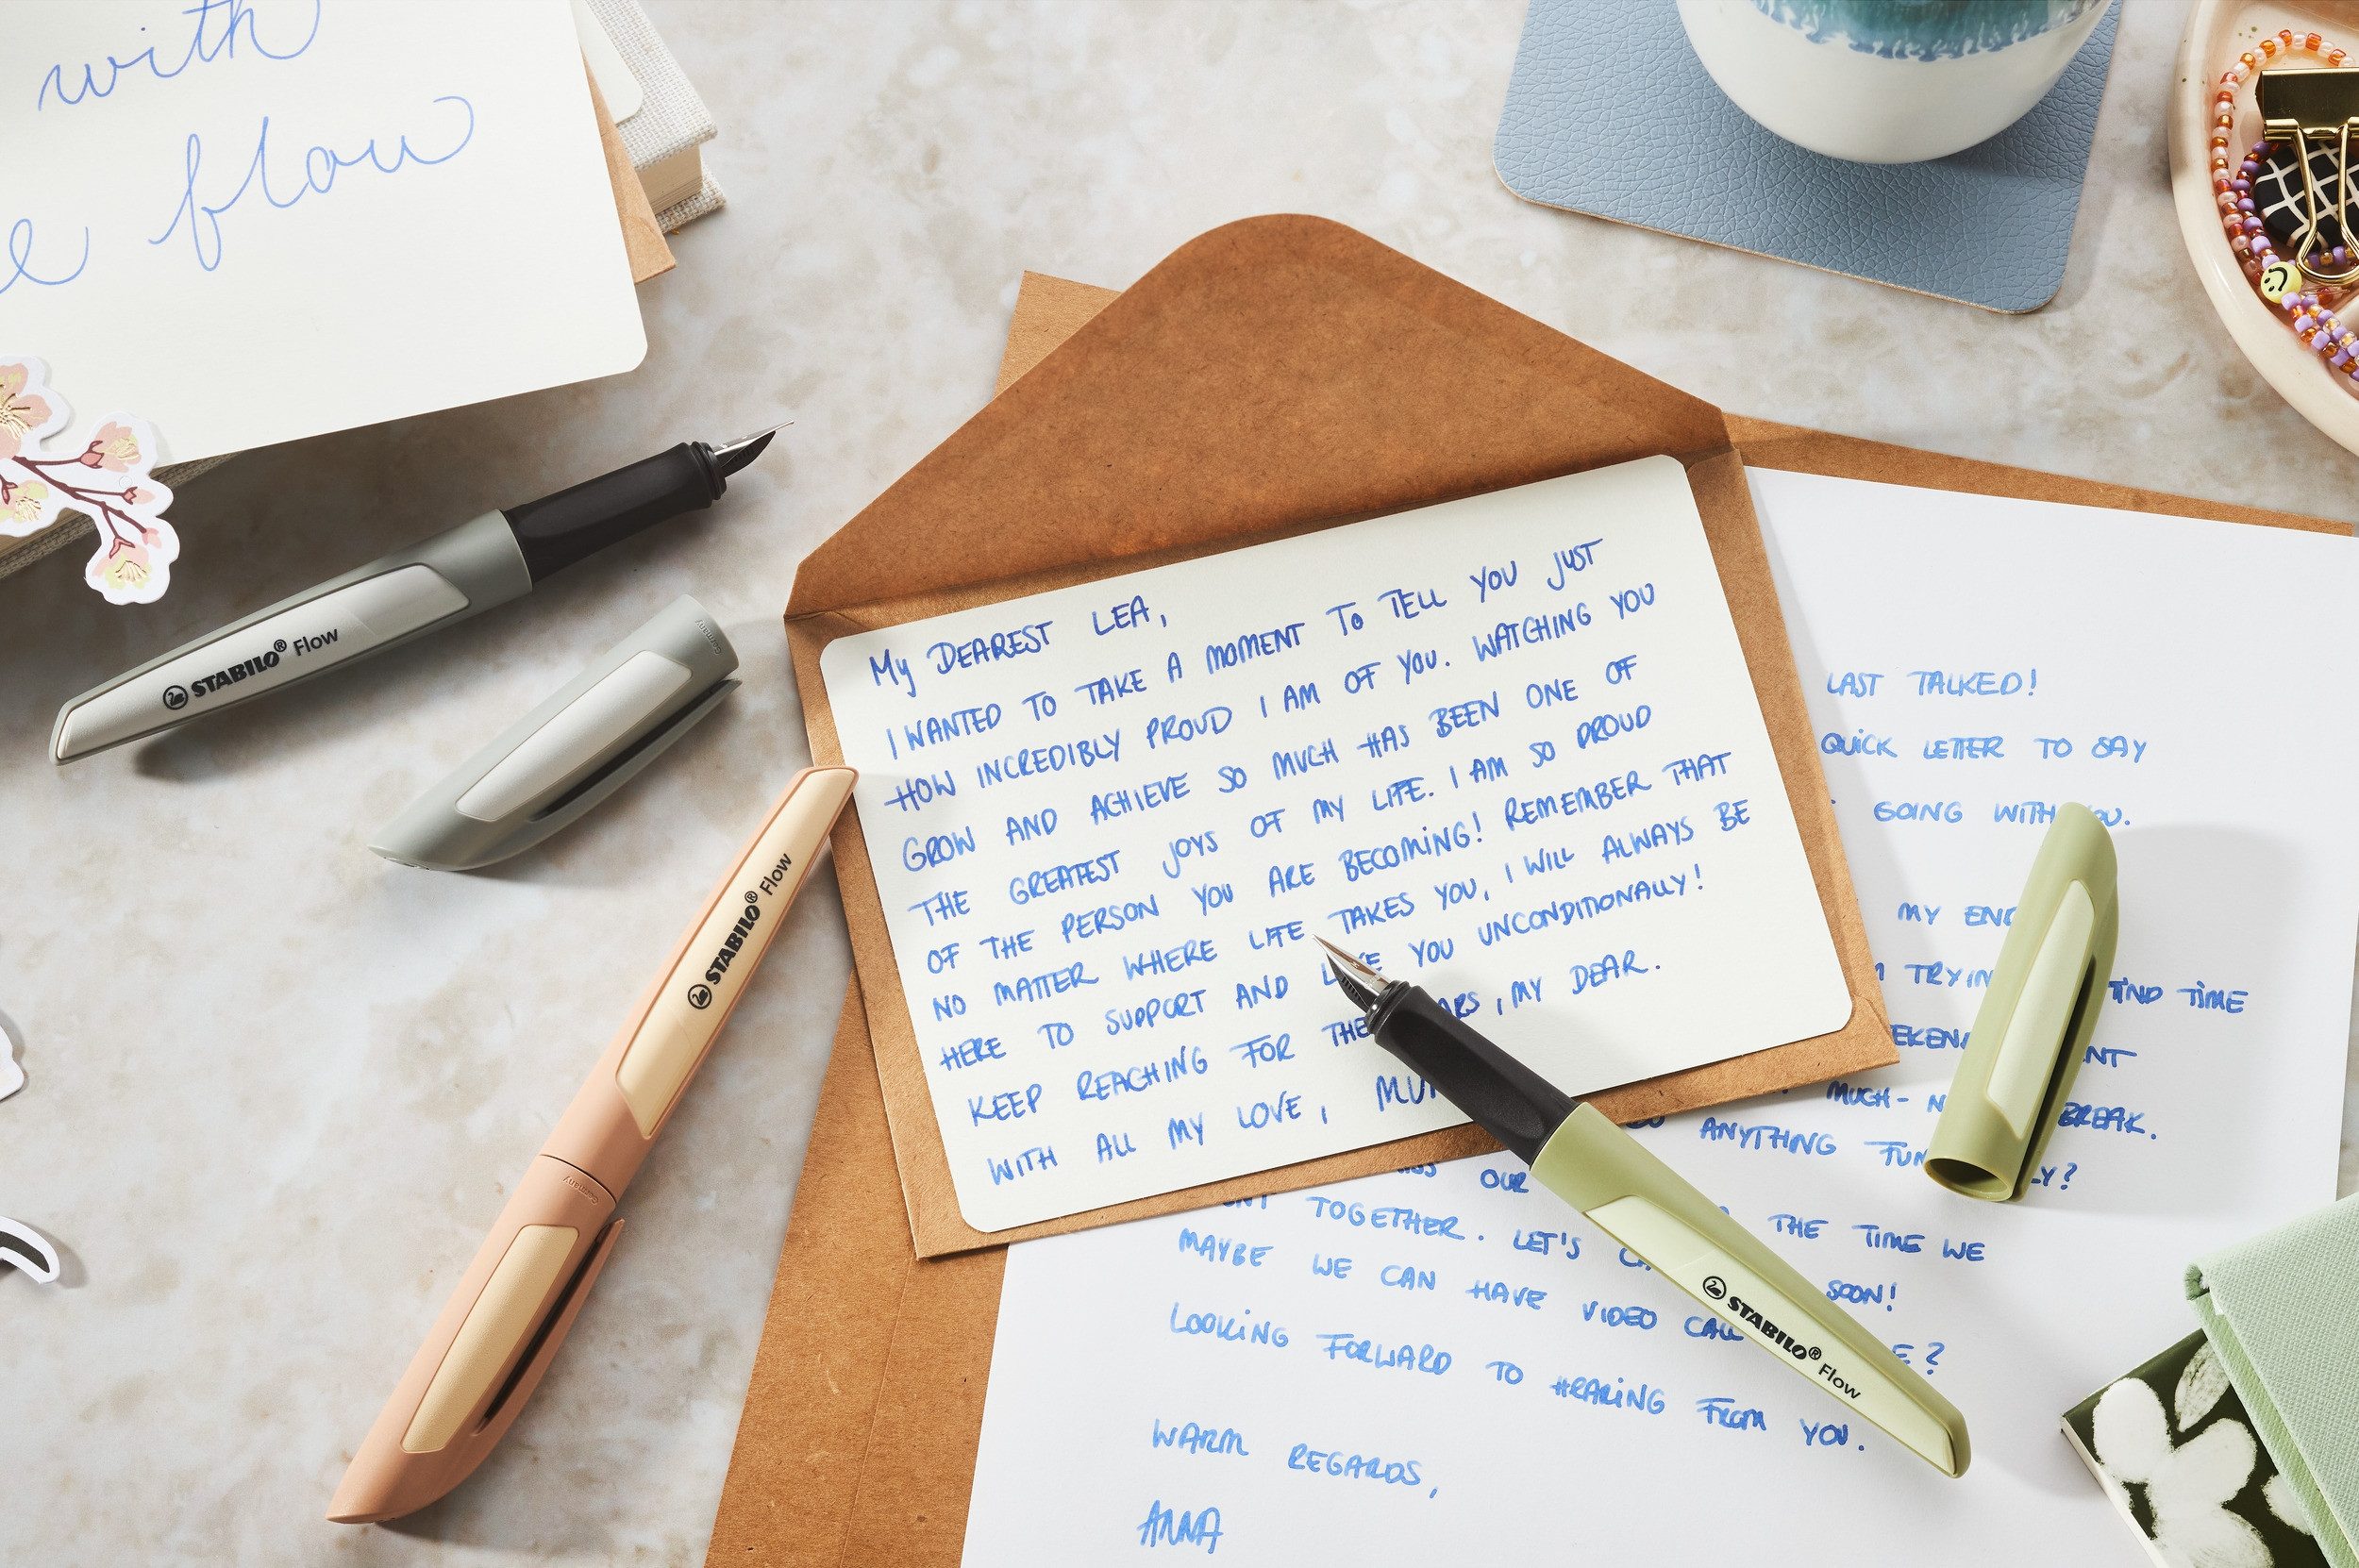 with
flow
STABILO® Flow
Germany
STABILO® Flow
Germany
My DEAREST LEA,
I WANTED TO TAKE A MOMENT TO TELL YOU JUST
HOW INCREDIBLY PROUD I AM OF YOU. WATCHING YOU
GROW AND ACHIEVE SO MUCH HAS BEEN ONE OF
THE GREATEST JOYS OF MY LIFE. I AM SO PROUD
OF THE PERSON YOU ARE BECOMING! REMEMBER THAT
NO MATTER WHERE LIFE TAKES YOU, I WILL ALWAYS BE
HERE TO SUPPORT AND YOU UNCONDITIONALLY!
KEEP REACHING FOR , MY DEAR.
WITH ALL MY LOVE,
LAST TALKED!
QUICK LETTER TO SAY
GOING WITH
MY
TIME
MUCH- BREAK.
ANYTHING
OUR
TOGETHER. LET'S THE TIME WE
SOON!
MAYBE WE CAN HAVE VIDEO CALL
LOOKING FORWARD TO HEARING FROM YOU.
WARM REGARDS,
ANNA
STABILO® Flow